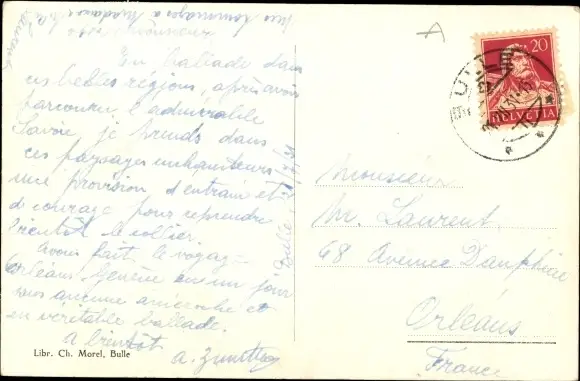 mes hommages à Madame
En ballade dans
ces belles régions, après avoir
parcouru l'admirable
Savoie, je prends dans
ces paysages enchanteurs
une provision d'entrain et
de courage pour reprendre
bientôt le collier.
Avons fait le voyag-
Orléans-Genève en un jour
sans aucune anicroche et
en véritable ballade.
à bientôt
Libr. Ch. Morel, Bulle
Bulle
A
20
HELVETIA
BULLE
Monsieur
M. Laurent
68 Avenue Dauphine
Orléans
France